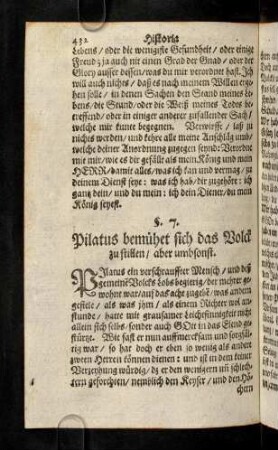 432 Historia
Lebens / oder die wenigiste Gesundheit / oder einige
Freud / ja auch nit einen Grad der Gnad / oder der
Glory ausser dessen / was du mir verordnet hast. Ich
will auch nichts / daß es nach meinem Willen erge-
hen solle / in denen Sachen den Stand meines Le-
bens / die Stund / oder die Weiß meines Todts be-
treffend / oder in einiger anderer zufallender Sach /
welche mir kunte begegnen. Verwirffe / laß zu
nichtes werden / und kehre alle meine Anschläg umb /
welche deiner Anordnung zugegen seynd: Verordne
mit mir / wie es dir gefällt als mein König und mein
HERR / damit alles / was ich kan und vermag / zu
deinem Dienst seye: was ich hab / dir zugehöre: ich
gang dein / und du mein: ich dein Diener / du mein
König seyest.
§. 7.
Pilatus bemühet sich das Volck
zu stillen / aber umbsonst.
Pilatus ein verschrauffter Mensch / und deß
gemeinen Volcks Lobs begierig / der mehrer ge-
wohnt war / auf das acht zugeben / was andern
gefiele / als was ihm / als einem Richter wol an-
stunde / hatte mit grausamer Leichtsinnigkeit nicht
allein sich selbs / sonder auch GOtt in das Elend ge-
stürtzt. Wie fast er nun auffmercksam und sorgfäl-
tig war / so hat doch er eben so wenig als andere
zween Herren können dienen: und ist in dem seiner
Verzeyhung würdig / dz er den wenigern und schlech-
tern geforchten / nemblich den Keyser / und den Hö-
chern